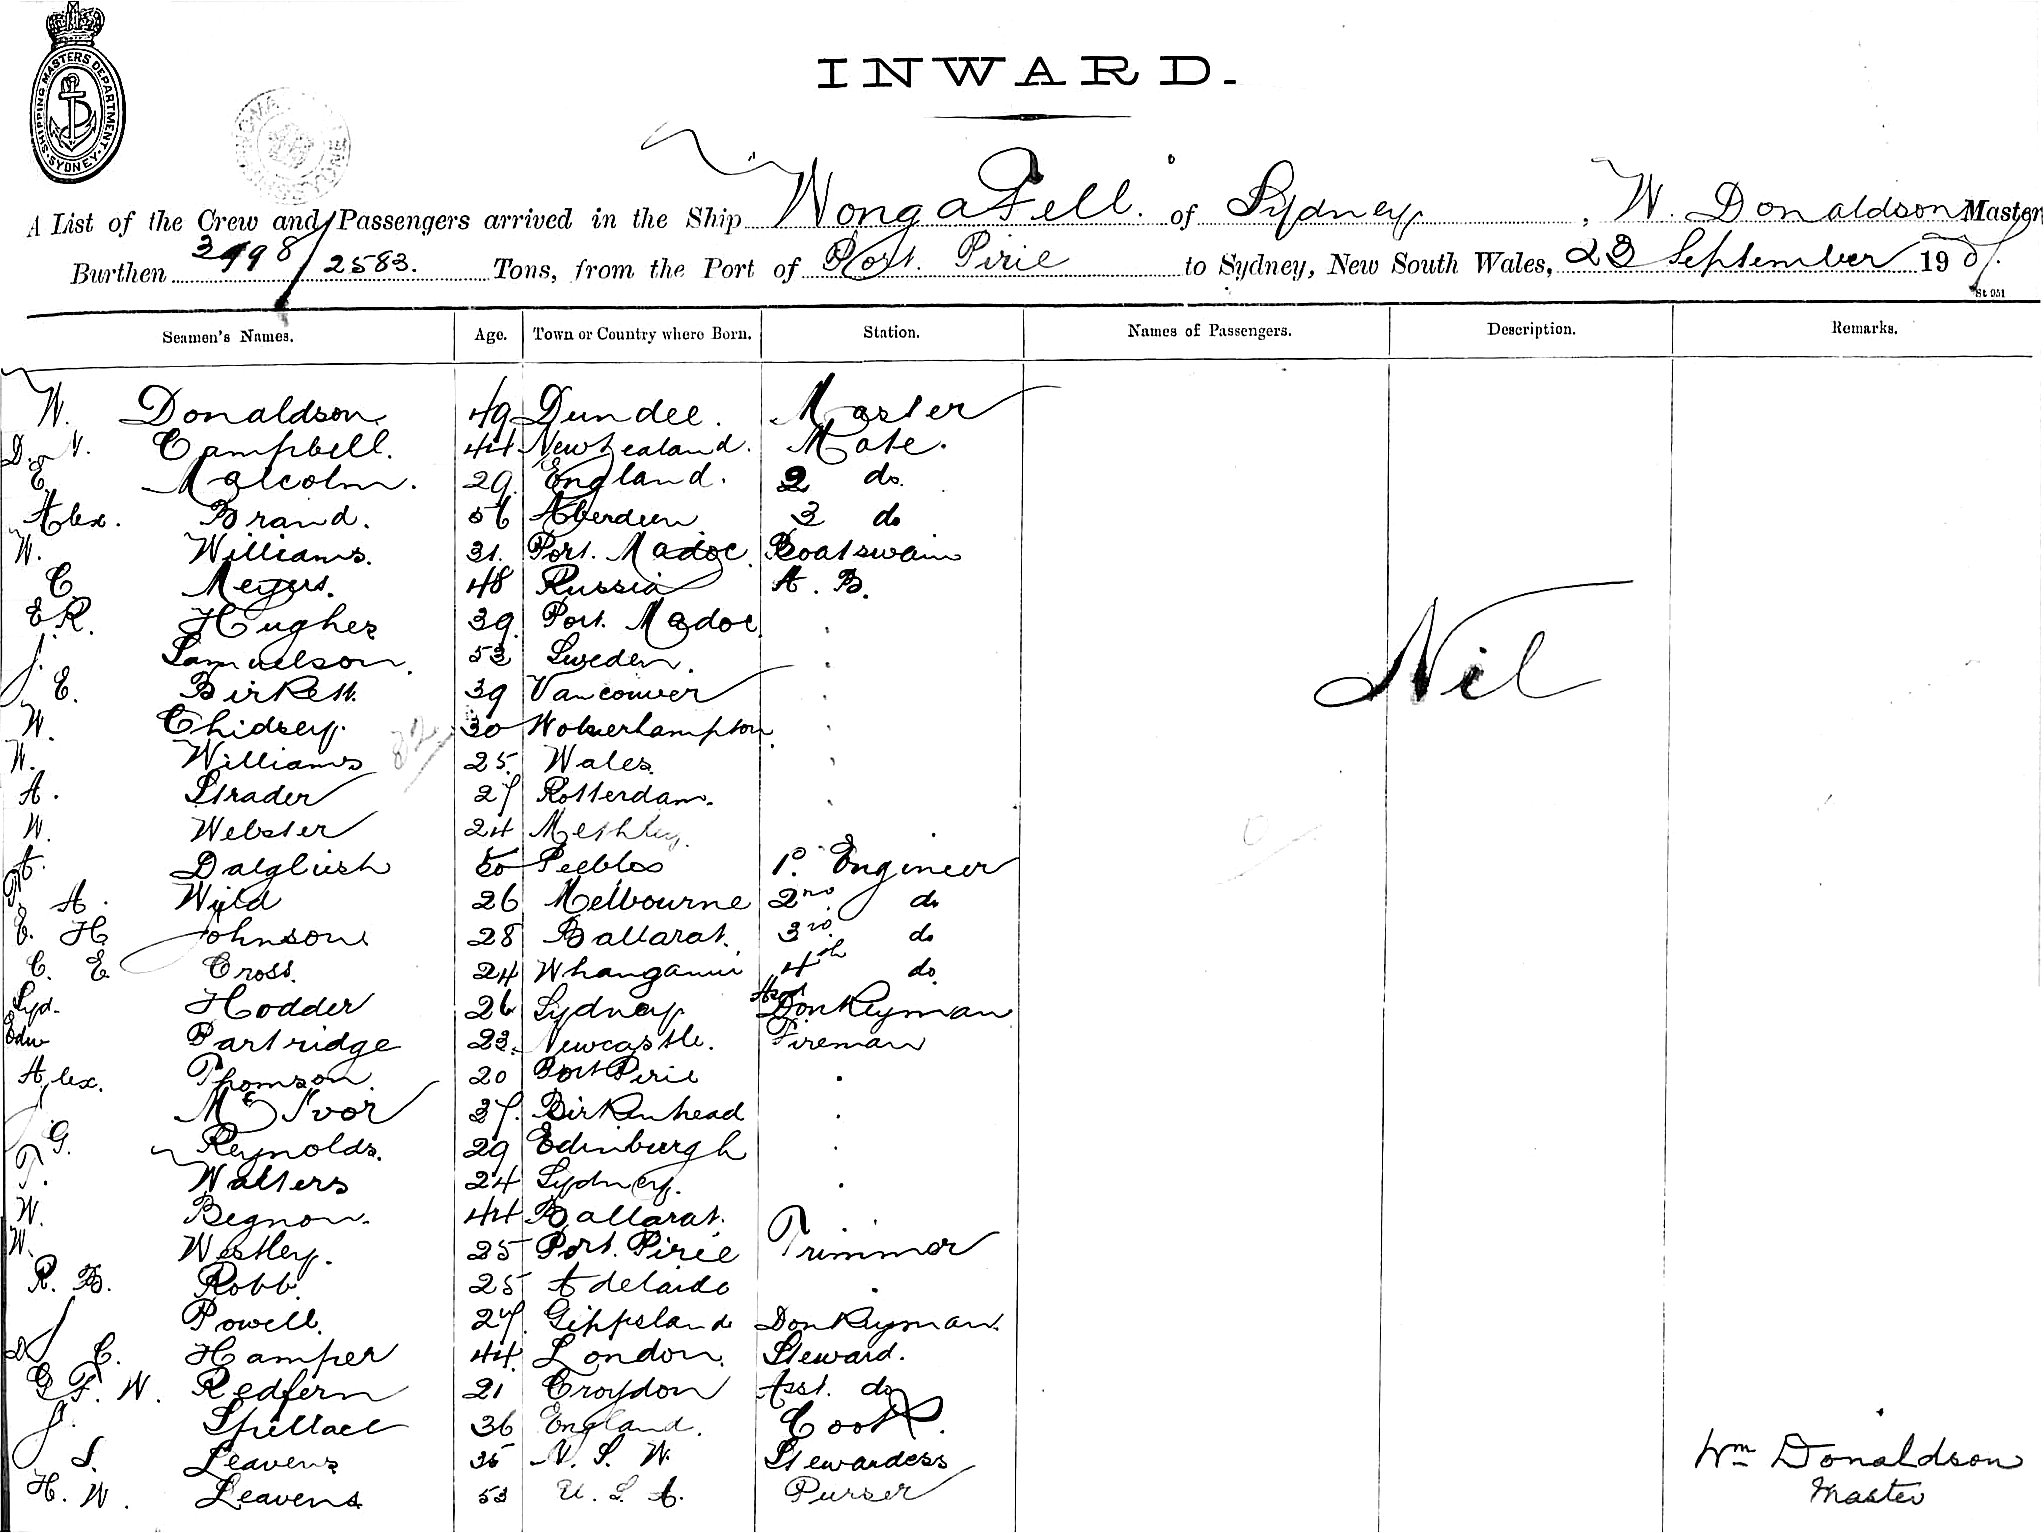 SHIPPING MASTERS DEPARTMENT · SYDNEY ·
INWARD.
A List of the Crew and Passengers arrived in the Ship "Wonga Fell" of Sydney, W. Donaldson Master
Burthen 3998/2583. Tons, from the Port of Port Pirie to Sydney, New South Wales, 23 September 190
St 951
Seamen's Names. Age. Town or Country where Born. Station. Names of Passengers. Description. Remarks.
W. Donaldson 49 Dundee. Master
D. N. Campbell. 44 New Zealand. Mate.
E Malcolm. 29 England. 2 do.
Alex. Brand. 56 Aberdeen 3 do
W. Williams. 31. Port. Madoc. Boatswain
C. Meyers. 48 Russia A. B.
E R. Hughes 39 Port. Madoc "
J. Samuelson. 53 Sweden. "
E. Birkett. 39 Vancouver "
W. Chidsey. 30 Wolverhampton "
82
W. Williams 25 Wales. "
A. Strader 27 Rotterdam. "
W. Webster 24 "
A. Dalgliesh 50 Peebles 1st Engineer
T. A. Wild 26 Melbourne 2nd do
E. H. Johnson 28 Ballarat. 3rd do
C. E Cross. 24 Whanganui 4th do.
Syd. Hodder 26 Sydney Asst Donkeyman
Edw Partridge 23. Newcastle. Fireman
Alex. Thomson. 20 Port Pirie "
J Mc Ivor 37. Birkenhead "
G. Reynolds. 29 Edinburgh "
T. Walters 24 Sydney. "
W. Begnon. 44 Ballarat. "
W. Westley. 25 Port. Pirie Trimmer
R. B. Robb. 25 Adelaide "
J Powell. 27. Gippsland Donkeyman.
D C. Hamper 44. London. Steward.
G F. W. Redfern 21 Croydon Asst. do
J. Spillael 36 England. Cook.
S. Leavens 35 N. S. W. Stewardess
H. W. Leavens 53 U. S. A. Purser
Nil
Wm Donaldson
Master